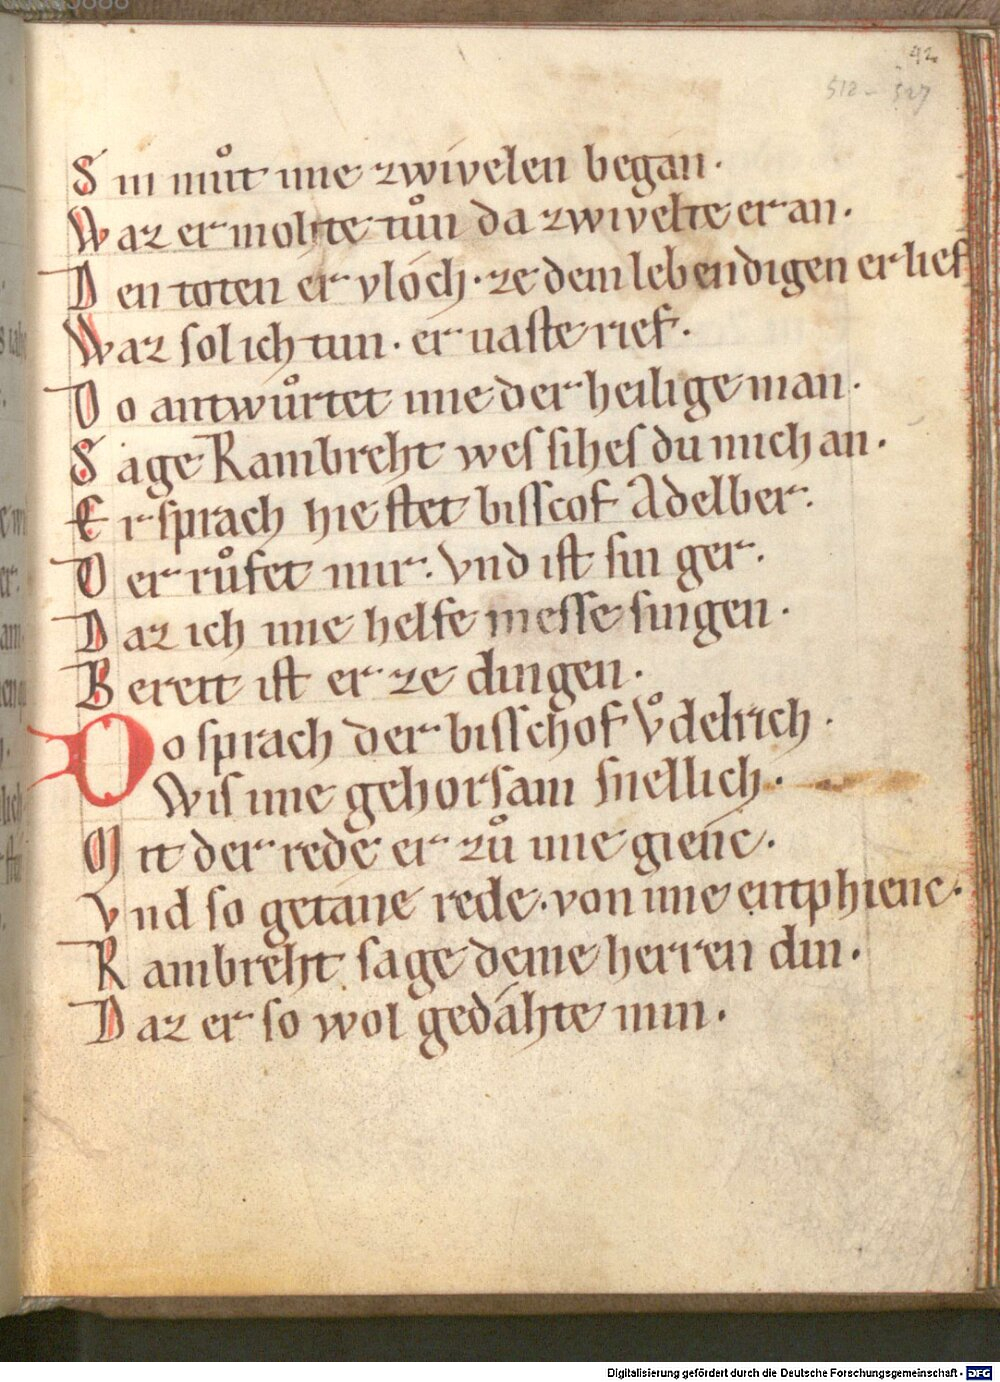 42
512 - 527
S in můt ime zwivelen began·
Waz er mohte tůn da zwivelte er an·
D en toten er vloch· ze dem lebendigen er lief
Waz sol ich tun· er vaste rief·
D o antwůrtet ime der heilige man·
S age Rambreht wes sihes du mich an·
E r sprach hie stet bisscof Adelber·
D er růfet mir· vnd ist sin ger·
D az ich ime helfe messe singen·
B ereit ist er ze dingen·
D o sprach der bisschof Vͦdelrich·
Wis ime gehorsam snellich·
M it der rede er zů ime gienc·
V nd so getane rede· von ime entphienc·
R ambreht sage deme herren din·
D az er so wol gedahte min·
Digitalisierung gefördert durch die Deutsche Forschungsgemeinschaft - DFG